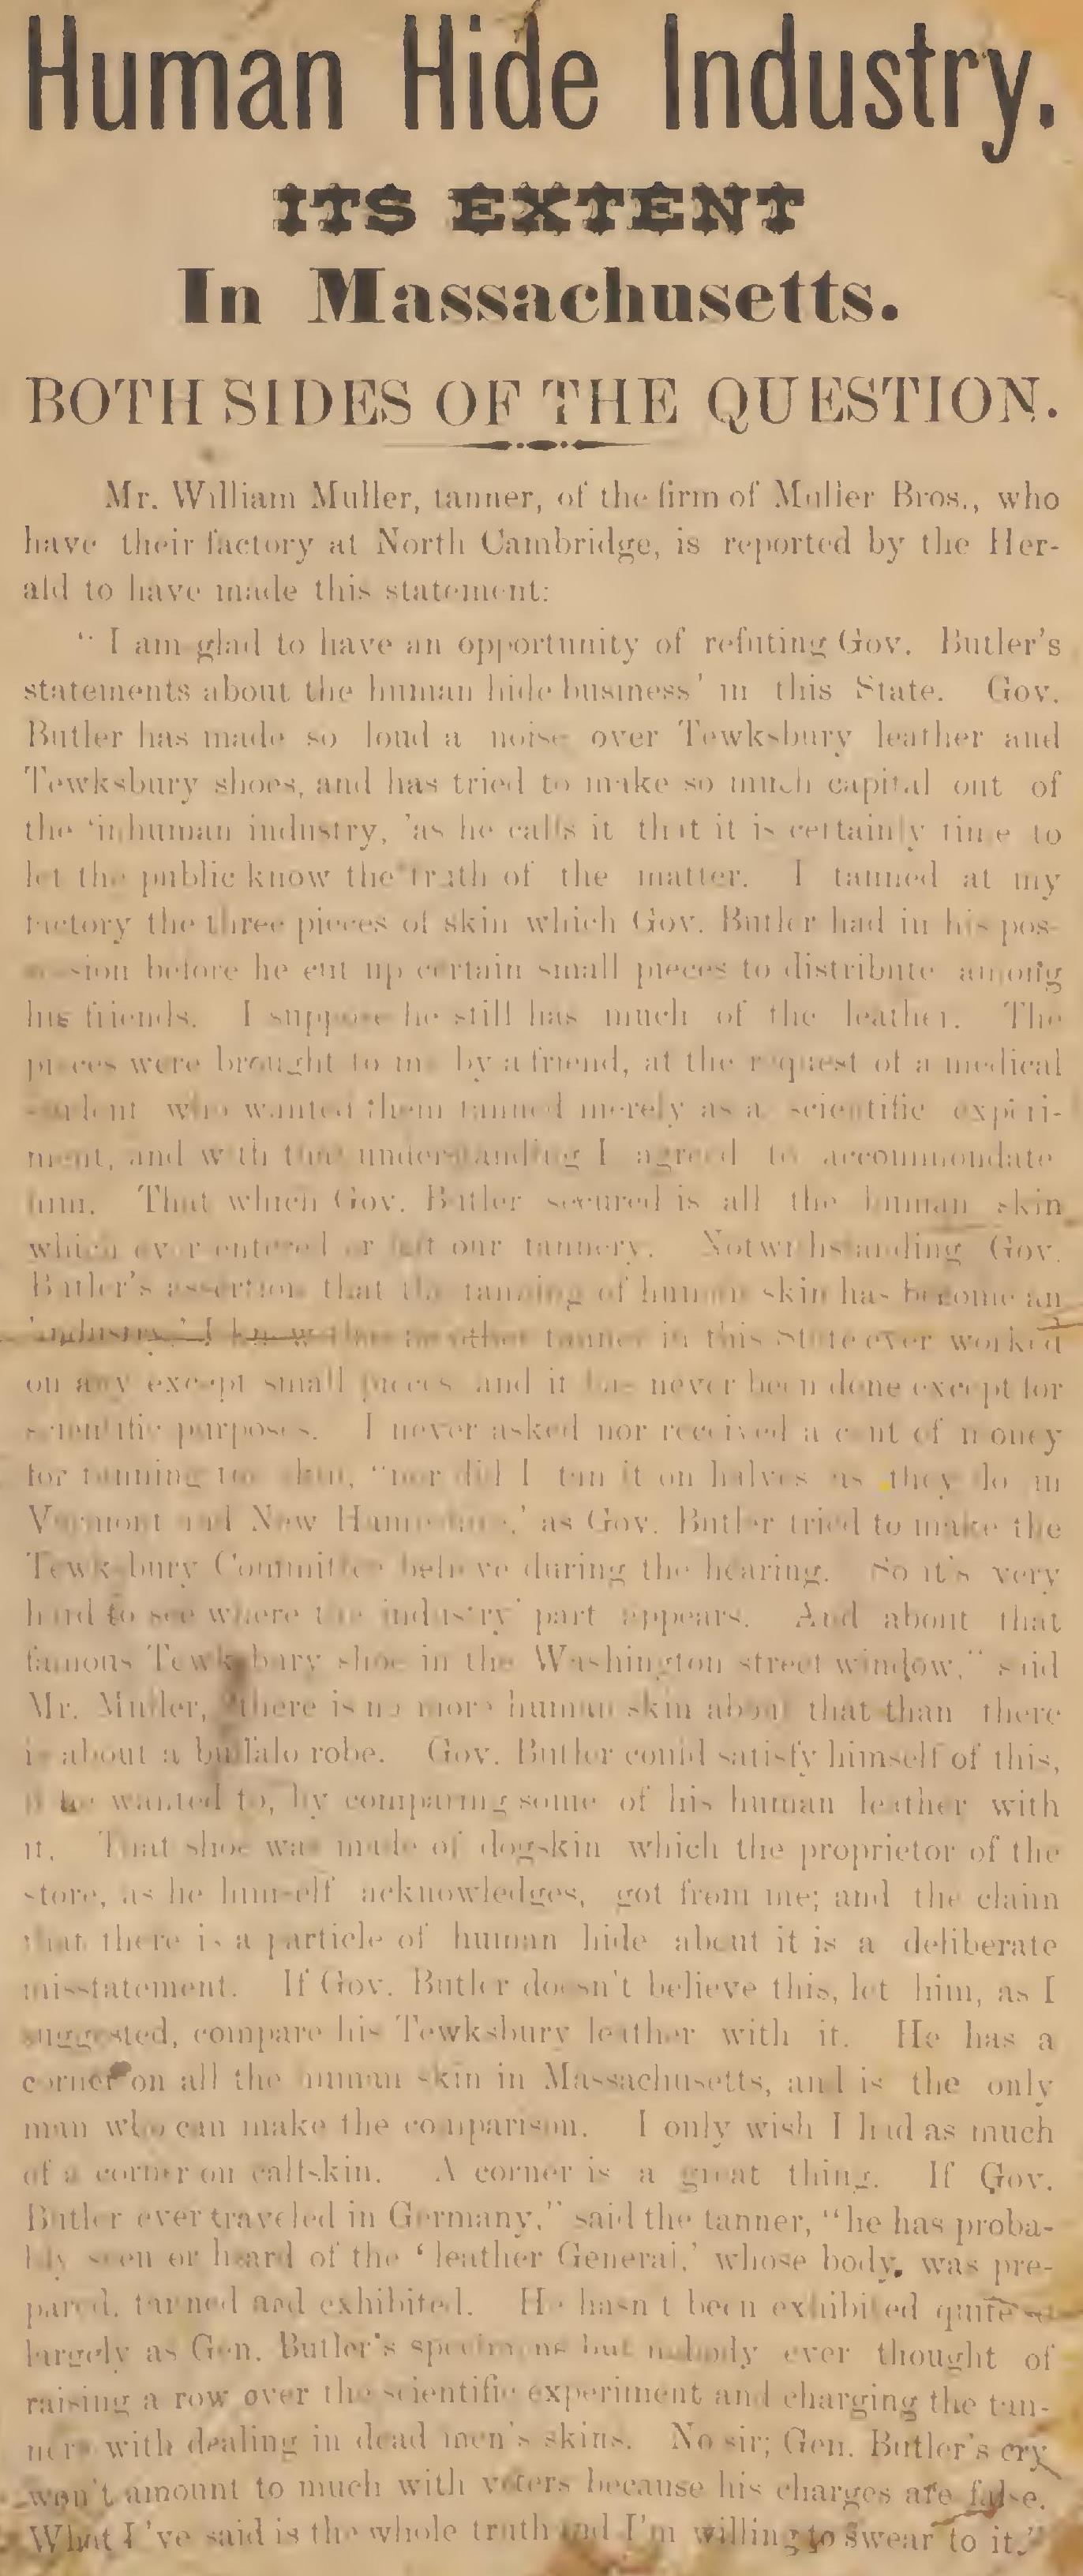 Human Hide Industry.
ITS EXTENT
In Massachusetts.
BOTH SIDES OF THE QUESTION.
Mr. William Muller, tanner, of the firm of Muller Bros., who
have their factory at North Cambridge, is reported by the Her-
ald to have made this statement:
" I am glad to have an opportunity of refuting Gov. Butler's
statements about the human hide business' in this State. Gov.
Butler has made so loud a noise over Tewksbury leather and
Tewksbury shoes, and has tried to make so much capital out of
the 'inhuman industry, 'as he calls it that it is certainly time to
let the public know the truth of the matter. I tanned at my
factory the three pieces of skin which Gov. Butler had in his pos-
session before he cut up certain small pieces to distribute among
his friends. I suppose he still has much of the leather. The
pieces were brought to me by a friend, at the request of a medical
student who wanted them tanned merely as a scientific experi-
ment, and with that understanding I agreed to accommondate
him. That which Gov. Butler secured is all the human skin
which ever entered or left our tannery. Notwithstanding Gov.
Butler's assertion that the tanning of human skin has become an
'industry,' I know that no other tanner in this State ever worked
on any except small pieces and it has never been done except for
scientific purposes. I never asked nor received a cent of money
for tanning the skin, "nor did I tan it on halves as they do in
Vermont and New Hampshire,' as Gov. Butler tried to make the
Tewksbury Committee believe during the hearing. So it's very
hard to see where the industry' part appears. And about that
famous Tewksbury shoe in the Washington street window," said
Mr. Muller, "there is no more human skin about that than there
is about a buffalo robe. Gov. Butler could satisfy himself of this,
if he wanted to, by comparing some of his human leather with
it. That shoe was made of dogskin which the proprietor of the
store, as he himself acknowledges, got from me; and the claim
that there is a particle of human hide about it is a deliberate
misstatement. If Gov. Butler doesn't believe this, let him, as I
suggested, compare his Tewksbury leather with it. He has a
corner on all the human skin in Massachusetts, and is the only
man who can make the comparison. I only wish I had as much
of a corner on calfskin. A corner is a great thing. If Gov.
Butler ever traveled in Germany," said the tanner, "he has proba-
bly seen or heard of the 'leather General,' whose body, was pre-
pared, tanned and exhibited. He hasn t been exhibited quite so
largely as Gen. Butler's specimens but nobody ever thought of
raising a row over the scientific experiment and charging the tan-
ners with dealing in dead men's skins. No sir; Gen. Butler's cry
won't amount to much with voters because his charges are false.
What I've said is the whole truth and I'm willing to swear to it."